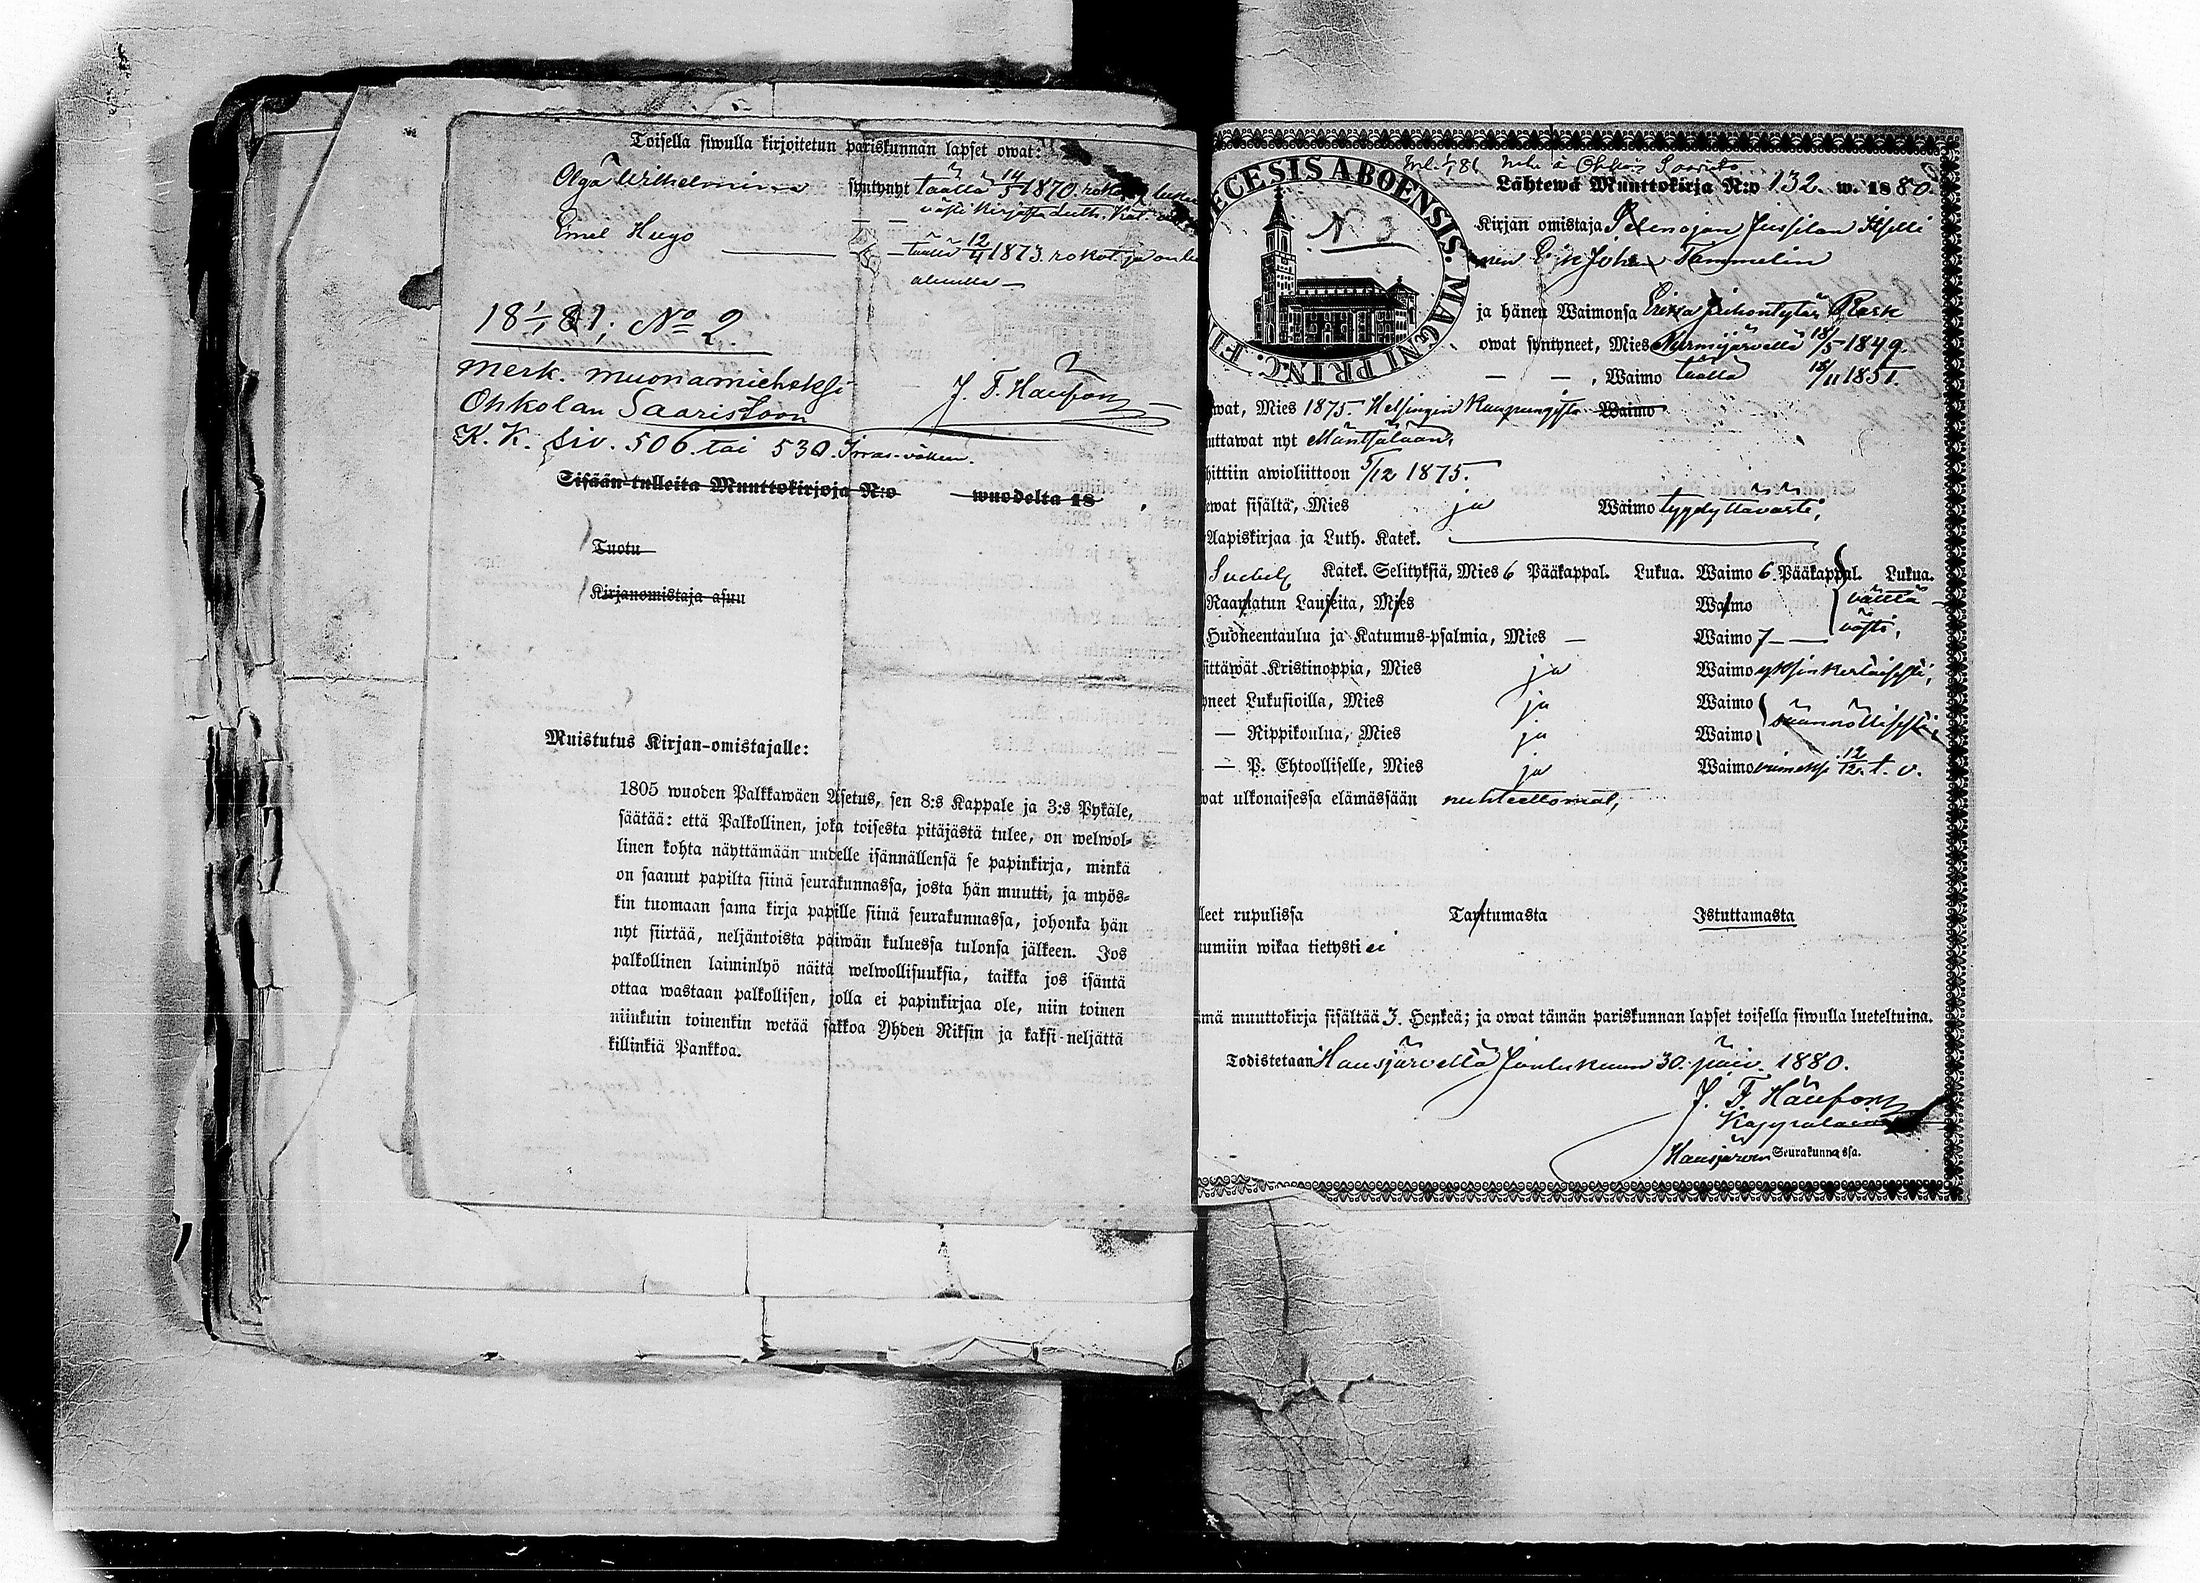 Toisella siwulla kirjoitetun pariskunnan lapset owat:
Olga Wilhelmina syntynyt täällä 14/5 1870. rokot.
västi kirjassa Luth. Kat.
Emel Hugo — täällä 12/4 1873. rokot. ja on lu
alulla —
18 1/1 81; No 2.
merk. muonamieheksi
Ohkolan Saaristoon
J. F. Häufon
K. K. siv. 506 tai 530. Irras-väkeen.
Sisään tulleita Muuttokirjoja N:o wuodelta 18
Tuotu
Kirjanomistaja asuu
Muistutus Kirjan-omistajalle:
1805 wuoden Palkkawäen Asetus, sen 8:s Kappale ja 3:s Pykäle,
säätää: että Palkollinen, joka toisesta pitäjästä tulee, on welwol-
linen kohta näyttämään uudelle isännällensä se papinkirja, minkä
on saanut papilta siinä seurakunnassa, josta hän muutti, ja myös-
kin tuomaan sama kirja papille siinä seurakunnassa, johonka hän
nyt siirtää, neljäntoista päiwän kuluessa tulonsa jälkeen. Jos
palkollinen laiminlyö näitä welwollisuuksia, taikka jos isäntä
ottaa wastaan palkollisen, jolla ei papinkirjaa ole, niin toinen
niinkuin toinenkin wetää sakkoa Yhden Riksin ja kaksi-neljättä
killinkiä Pankkoa.
ECESIS ABOENSIS. MAGNI PRINC. FI
N 3
Lähtewä Muuttokirja N:o 132. w. 1880.
Kirjan omistaja Jussilan Itselli
nen Johan Tammelin
ja hänen Waimonsa Erika Juhontytär Rask
owat syntyneet, Mies Nurmijärvellä 18/5 1849.
— — , Waimo täällä 18/11 1851.
wat, Mies 1875. Helsingin Kaupungista Waimo
uttawat nyt Mäntsälään.
hittiin awioliittoon 5/12 1875.
ewat sisältä, Mies ja Waimo tyydyttävästi,
Aapiskirjaa ja Luth. Katek.
Katek. Selityksiä, Mies 6 Pääkappal. Lukua. Waimo 6. Pääkappal. Lukua.
Raamatun Lauseita, Mies Waimo välttä-
Huoneentaulua ja Katumus-psalmia, Mies — Waimo 7 — västi,
sittäwät Kristinoppia, Mies ja Waimo yksinkertaisesti,
yneet Lukusioilla, Mies ja Waimo
— Rippikoulua, Mies ja Waimo säännöllisesti,
— P. Ehtoolliselle, Mies ja Waimo viimeksi 12/12 t. v.
wat ulkonaisessa elämässään nuhteettomat,
leet rupulissa Tarttumasta Istuttamasta
umiin wikaa tietysti ei
ämä muuttokirja sisältää 3. Henkeä; ja owat tämän pariskunnan lapset toisella siwulla lueteltuina.
Todistetaan Hausjärvellä Joulukuun 30. päiv. 1880.
J. F. Häufon
Kappalainen
Hausjärven Seurakunnassa.